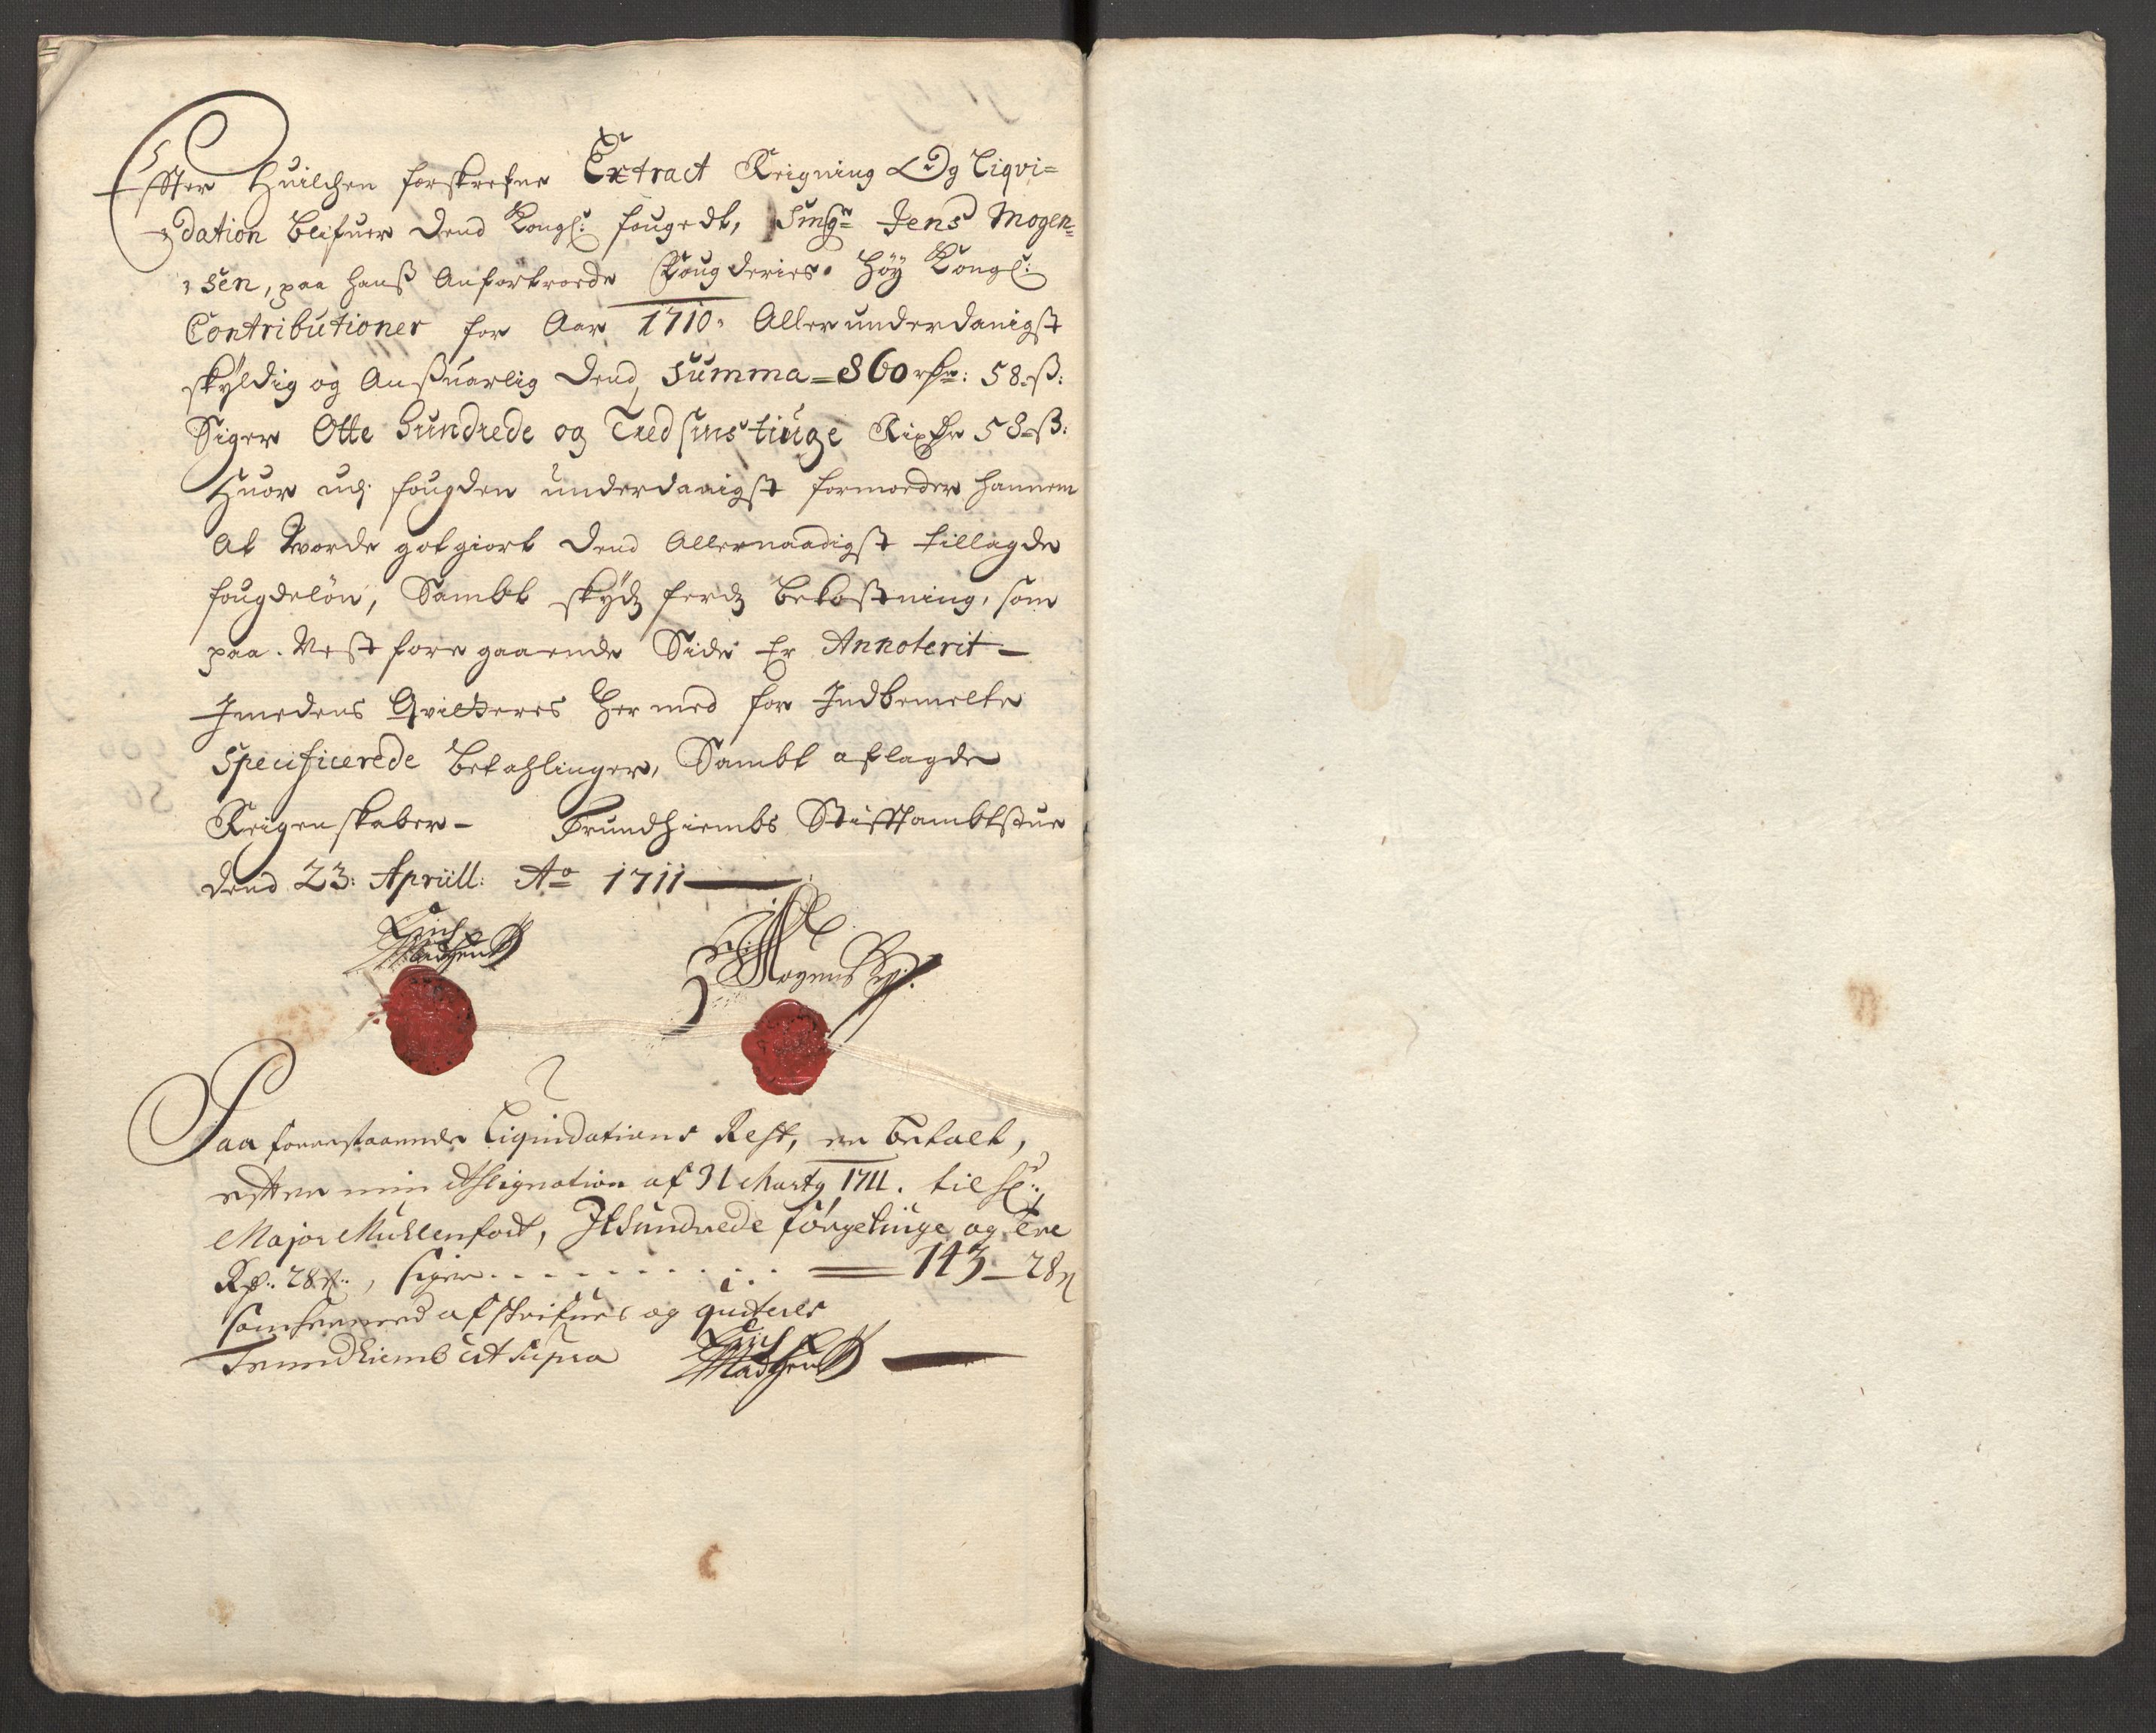 Effter Huilchen forskrefne Extract Reigning Og Liqvi=
dation blifuer dend Kongl: fougedt, Sing:r Jens Mogen=
sen, paa hanß Anfortroede Fougderies Høy Kongl:
Contributioner for Aar 1710, Allerunderdanigst
skÿldig og Ansuarlig dend Summa = 860 rdr: 58 ß:
Siger Otte Hundrede og Tredsinstiuge Rixdr 58 ß:
Huor udj fougden underdanigst formoder hannem
At worde gotgiort dend Allernaadigst tillagde
fougdeløn, Sambt skÿdz ferdz bekostning, som
paa Nest foregaaende Side Er Annoterit —
Imedens Qvitteres Hermed for Indbemelte
Specificerede betahlinger, Sambt aflagde
Reigenskaber — Trundhiembs Stifftambtstue
dend 23: Aprill: Ao 1711
Madsen
Mogens
Paa forrestaaende Liqvidations Rest, er betalt,
efter min Assignation af 31 Marty 1711. til Hr:
Major Mühlenfort, It Hundredeförgetiuge og tre
Rdr: 28 ß:, siger . . . . . . . . . . 143 — 28 ß
som hermed afskrifues og quiteres
Trundhiemb ut supra Madsen